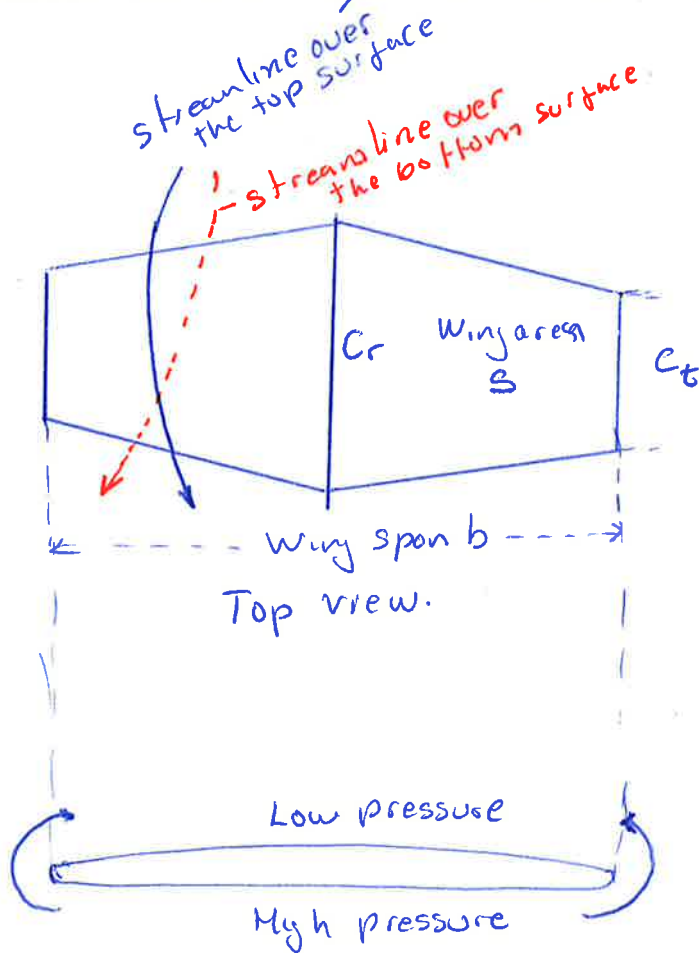 streamline over
the top surface
streamline over
the bottom surface
Cr
Wing area
S
Ct
Wing span b
Top view.
Low pressure
High pressure